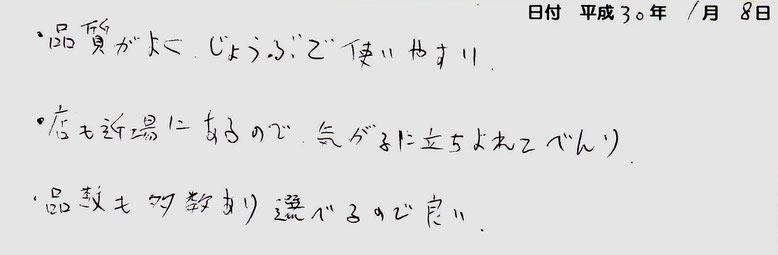 日付 平成30年 1月 8日
・品質がよく、じょうぶで使いやすい.
・店も近場にあるので、気がるに立ちよれてべんり.
・品数も多数あり選べるので良い.